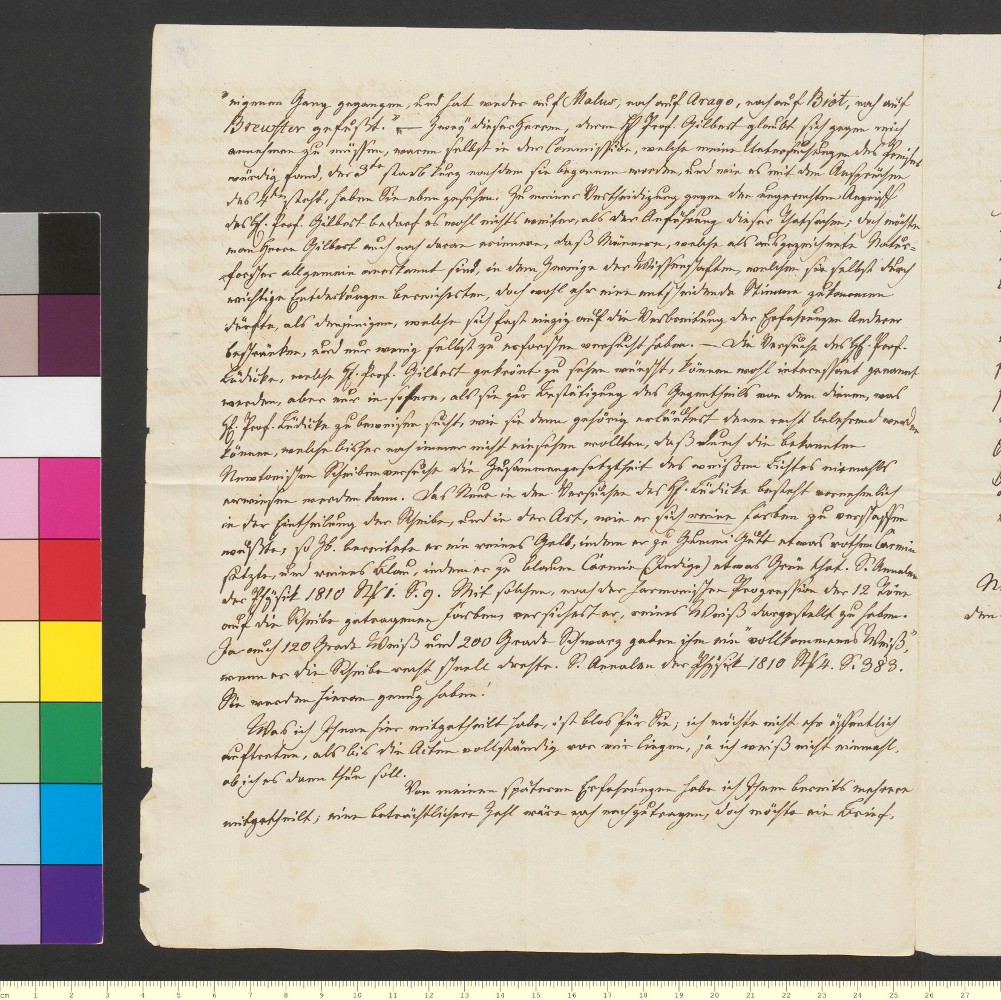 "eigenen Gang gegangen, und hat weder auf Malus, noch auf Arago, noch auf Biot, noch auf
Brewster gefußt." — Zwey dieser Herren, deren H Prof. Gilbert glaubt sich gegen mich
annehmen zu müssen, waren selbst in der Commission, welche meine Untersuchungen des Preises
würdig fand, der 3te starb kurz nachdem sie begonnen worden, und wie es mit den Ansprüchen
des 4ten steht, haben Sie eben gesehen. Zu meiner Vertheidigung gegen den ungerechten Angriff
des H. Prof. Gilbert bedarf es wohl nichts weiter, als der Anführung dieser Thatsachen; doch möchte
man Herrn Gilbert auch noch daran erinnern, daß Männern, welche als ausgezeichnete Natur-
forscher allgemein anerkannt sind, in dem Zweige der Wissenschaften, welchen sie selbst durch
wichtige Entdeckungen bereicherten, doch wohl ehr eine entscheidende Stimme zukommen
dürfte, als denjenigen, welche sich fast einzig auf die Verbreitung der Erfahrungen Anderer
beschränken, und nur wenig selbst zu erforschen versucht haben. — Die Versuche des H. Prof.
Lüdicke, welche H. Prof. Gilbert gekrönt zu sehen wünscht, können wohl interessant genannt
werden, aber nur in sofern, als sie zur Bestätigung des Gegentheils von dem dienen, was
H. Prof. Lüdicke zu beweisen sucht, wie sie denn gehörig erläutert denen recht belehrend werden
können, welche bisher noch immer nicht einsehen wollten, daß durch die bekannten
Newtonischen Scheibenversuche die Zusammengesetztheit des weißen Lichtes niemahls
erwiesen werden kann. Das Neue in den Versuchen des H. Lüdicke besteht vornehmlich
in der Eintheilung der Scheibe, und in der Art, wie er sich reine Farben zu verschaffen
wußte, so zb. bereitete er ein reines Gelb, indem er zu Gummi Gutt etwas rothen Carmin
setzte, und reines Blau, indem er zu blauen Carmin (Indigo) etwas Grün that. S. Annalen
der Physik 1810 St. 1. S. 9. Mit solchen, nach der harmonischen Progression der 12 Töne
auf die Scheibe getragenen Farben, versichert er, reines Weiß dargestellt zu haben.
Ja auch 120 Grade Weiß und 200 Grade Schwarz gaben ihm ein "vollkommenes Weiß",
wenn er die Scheibe recht schnell drehte. S. Annalen der Physik 1810 St. 4. S. 383.
Sie werden hieran genug haben!
Was ich Ihnen hier mitgetheilt habe, ist blos für Sie; ich möchte nicht ehr öffentlich
auftreten, als bis die Acten vollständig vor mir liegen, ja ich weiß nicht einmahl,
ob ich es dann thun soll.
Von meinen späteren Erfahrungen habe ich Ihnen bereits mehrere
mitgetheilt; eine beträchtlichere Zahl wäre noch nachzutragen, doch möchte ein Brief,